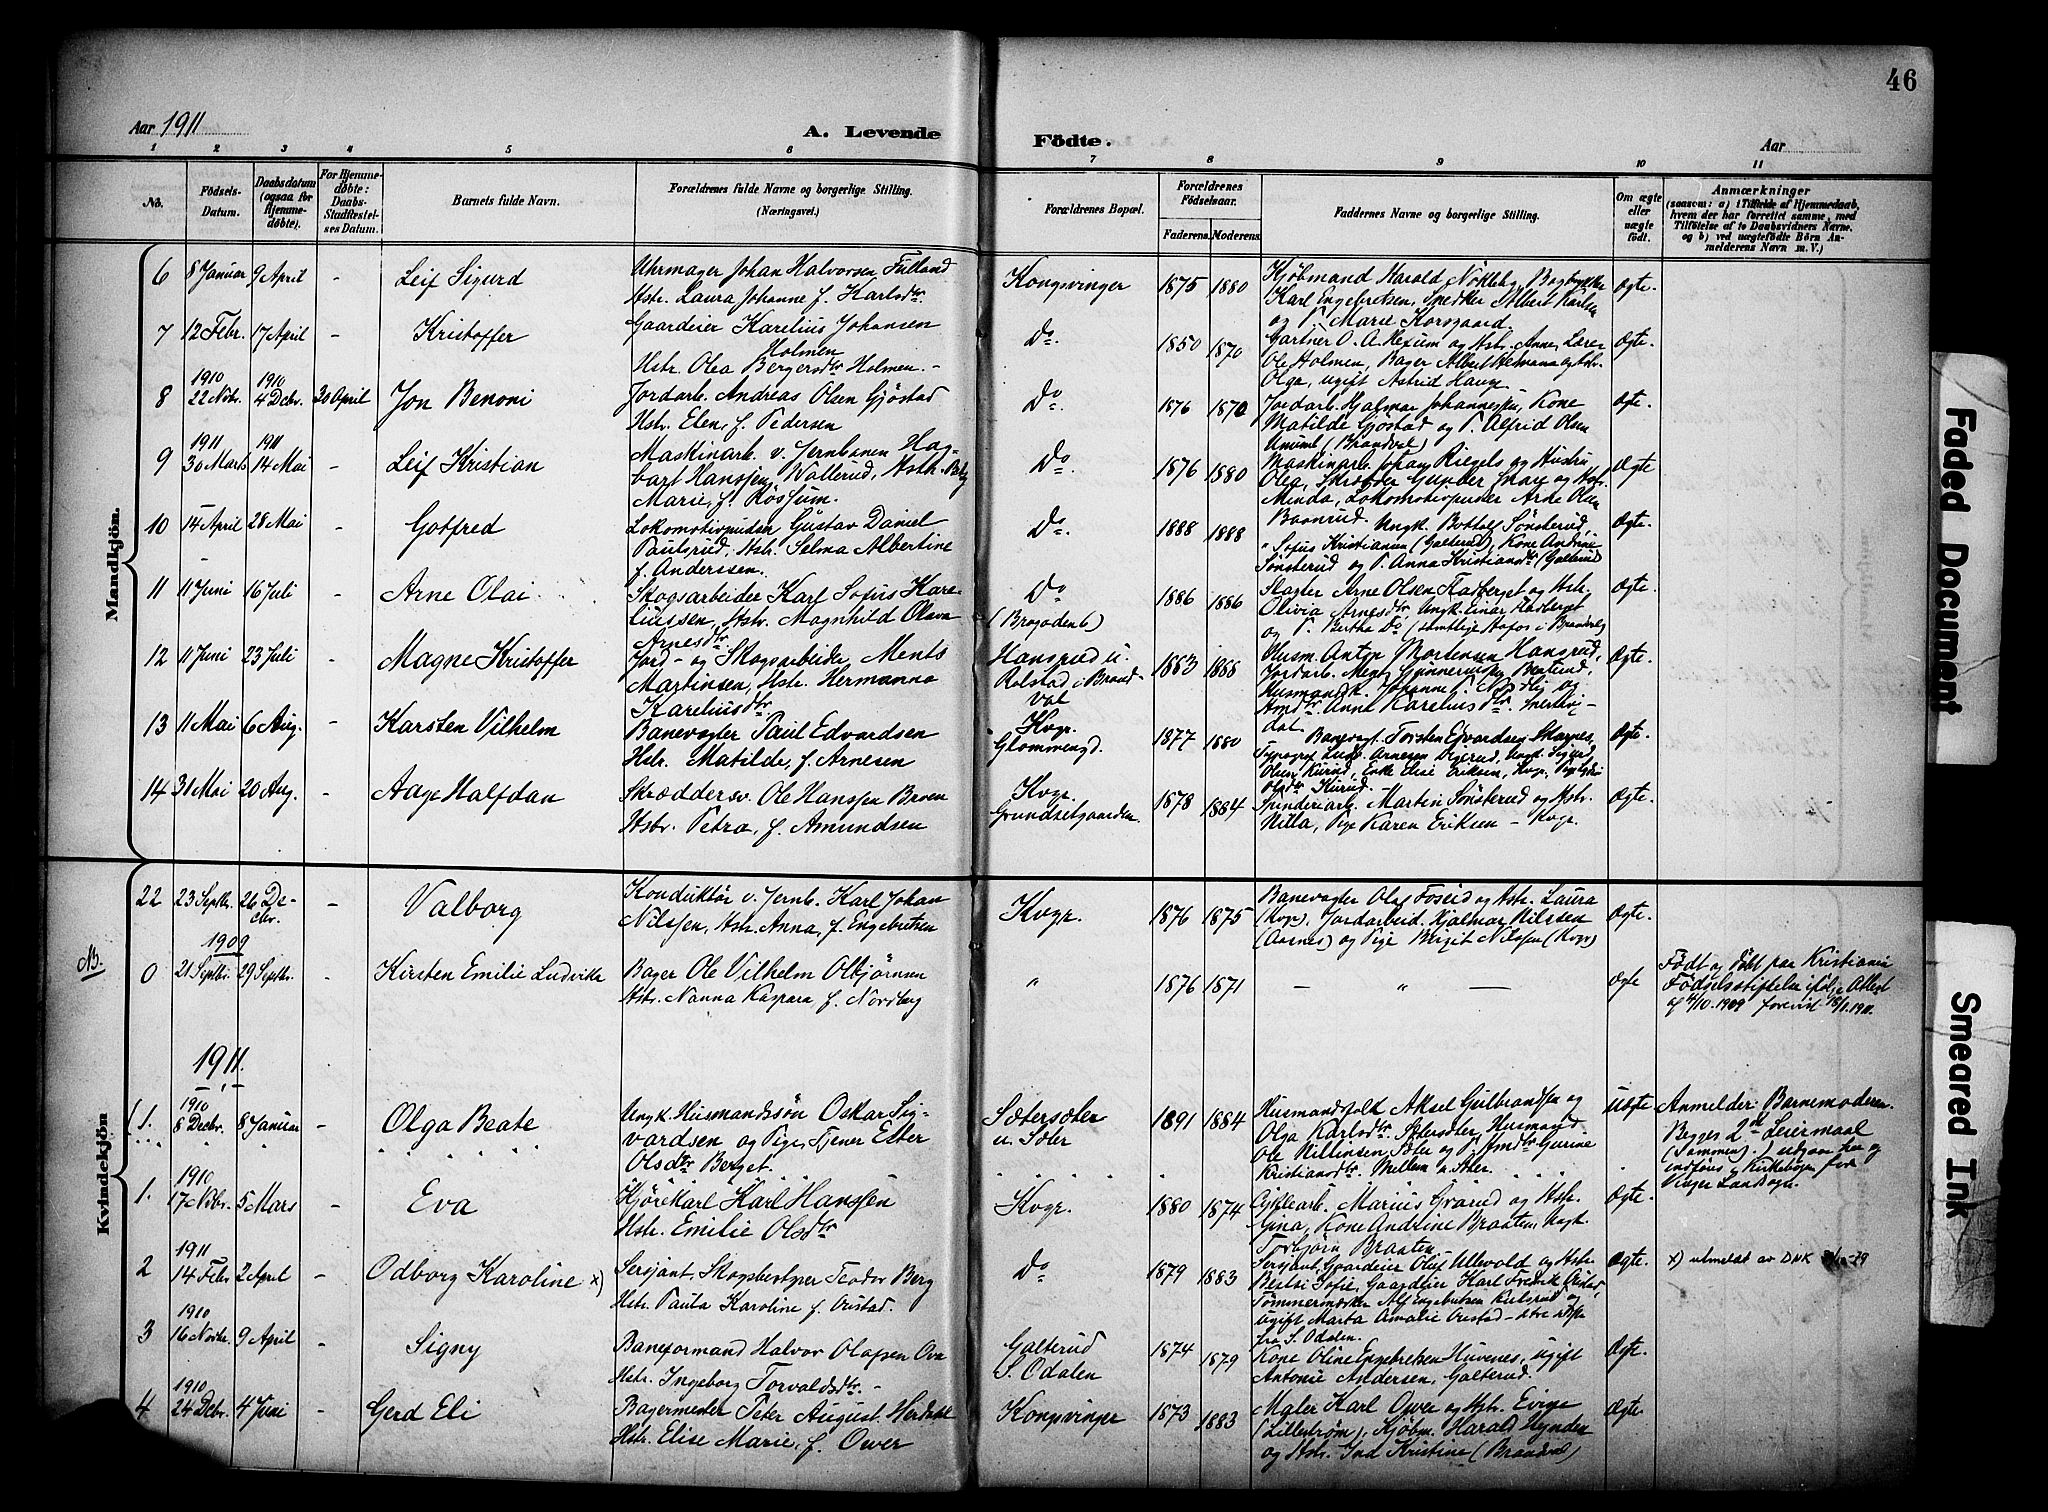 46
Aar 1911
A. Levende
Födte.
Aar
1 2 3 4 5 6 7 8 9 10 11
No.
Födsels-Datum.
Daabsdatum (ogsaa for Hjemme-døbte).
For Hjemme-døbte: Daabs-Stadfæstel-ses Datum.
Barnets fulde Navn.
Forældrenes fulde Navne og borgerlige Stilling.
(Næringsvei.)
Forældrenes Bopæl.
Forældrenes Födselsaar.
Faderens. Moderens.
Faddernes Navne og borgerlige Stilling.
Om ægte eller uægte födt.
Anmærkninger
(saasom: a) i Tilfælde af Hjemmedaab, hvem der har forrettet samme, med Tilföielse af to Daabsvidners Navne, og b) ved uægtefödte Börn An-melderens Navn m. V.)
Mandkjön.
6 8 Januar 9 April - Leif Sigurd
Uhrmager Johan Halvorsen
Hstr. Laura Johanne f. Karlsdtr.
Kongsvinger 1875 1880
Kjøbmand Harald Nökleby,
Karl Engebretsen, Snedker Albert
og P. Marie Korsgaard.
Ægte.
7 12 Febr. 17 April - Kristoffer
Gaardeier Karelius Johansen
Holmen
Hstr. Olea Bergersdtr Holmen. -
Do. 1850 1870
Gartner O. A. Hexum og Hstr. Anne, Lærer
Ole Holmen, Bager Albert
Olga, ugift Astrid Hauge -
Ægte.
1910 1910
8 22 Novbr. 4 Decbr. 30 April Jon Benoni
Jordarb. Andreas Olsen Gjøstad
Hstr. Elen, f. Pedersen
Do 1876 1870
Jordarb. Hjalmar Johannessen, Kone
Matilde Gjöstad og P. Alfrid Olsen
(Brandval)
Ægte.
1911 1911
9 30 Mars 14 Mai - Leif Kristian
Maskinarb. v. Jernbanen Hag-
bart Hanssen, Wallerud, Hstr.
Marie, f. Røssum.
Do. 1876 1880
Maskinarb. Johan Riegels og Hustru
Olga, Skrædder Gunder og Hstr.
Minda, Lokomotivpudser Arne Olsen
Ægte
10 14 April 28 Mai - Gotfred
Lokomotivpudser Gustav Daniel
Paulsrud, Hstr. Selma Albertine
f. Anderssen.
Do. 1888 1888
Baanrud. Ungk. Botholf Sønsterud,
" Sofus Kristiansen (Galterud), Kone Andrine
Sønsterud og P. Anna Kristiansdtr (Galterud
Ægte.
11 11 Juni 16 Juli - Arne Olai
Skogsarbeider Karl Sofus Kare-
liussen, Hstr. Magnhild Olava
Arnesdtr
Do
(Brogaden 6)
1886 1886
Slagter Arne Olsen Flatberget og Hstr.
Olivia Arnesdtr, Ungk. Einar Flatberget
og P. Bertha Do (samtlige i Brandval)
Ægte.
12 11 Juni 23 Juli - Magne Kristoffer
Jord- og Skogsarbeider Ments
Martinsen, Hstr. Hermanna
Kareliusdtr
Hansrud u.
Rolstad i Brand-
val
1863 1868
Husm. Anton Mortensen Hansrud,
Jordarb. Ments Gunneriussen,
Husmandsk. Johanne og
Amdtr. Anne Kareliusdtr.
Ægte.
13 11 Mai 6 Aug. - Karsten Vilhelm
Banevogter Paul Edvardsen
Hstr. Matilde, f. Arnesen
Kvgr.
Glommengd.
1877 1880
Banevogt. Torsten Edvardsen Skarnes,
Typograf Ludv. Arnesen Digerud, Ungk. Sigurd
Olsen Kurud, Enke Elise Eriksen, Kvgr,
Olsdtr Kurud. -
Ægte.
14 31 Mai 20 Aug. - Aage Halfdan
Skræddersv. Ole Hanssen Bræn
Hstr. Petra, f. Amundsen
Kvgr.
Grundsetgaarden.
1878 1884
Spinderiarb. Martin Sønsterud og Hstr.
Nilla, Pige Karen Eriksen - Kvgr.
Ægte.
Kvindekjön
22 23 Septbr. 26 De-cbr. - Valborg
Konduktör v. Jernb. Karl Johan
Nilssen, Hstr. Anna, f. Engebretsen
Kvgr. 1876 1875
Banevogter Olaf Foseid og Hstr. Laura
(Kvgr). Jordarbeid. Hjalmar Nilssen
(Aarnes) og Pige Birgit Nilssen (Kvgr)
Ægte.
NB.
1909
0 21 Septbr. 29 Septbr. - Kirsten Emilie Ludvikke
Bager Ole Vilhelm Olbjørnsen
Hstr. Nanna Kaspara f. Nordberg
" 1876 1871 - " -
Ægte
Födt og döbt paa Kristiania
Födselsstiftelse ifølge Attest
af 4/10. 1909 forevist 1911.
1911.
1910
1. 8 Decbr. 8 Januar - Olga Beate
Ungk. Husmandssön Oskar Sig-
vardsen og Pige, Tjener Ester
Olsdtr Berget.
Sætersæter
u. Sæter
1891 1884
Husmandsfolk Aksel Gulbrandsen og
Olga Karlsdtr. Sætersæter, Husmand
Ole Nillinsen, Sæter og P. Amdtr Gurine
Kristiansdtr. Mellem u. Sæter.
Uægte
Anmelder: Barnemoderen.
Begges 2det Leiermaal
(Sammen). udgaar her og
indföres i Kirkebogen for
Vinger Landsogn.
1910
1. 17 Novbr. 5 Mars - Eva
Kjörekarl Karl Hanssen
Hstr. Emilie Olsdtr
Kvgr. 1880 1874
Cyklearb. Marius Gvarud og Hstr.
Gina, Kone Andrine Braaten, Ungk.
Torbjørn Braaten.
Ægte.
1911
2 14 Febr 2 April - Odborg Karoline x)
Sersjant, Skogbestyrer Teodor Berg
Hstr. Paula Karoline f. Ovistad.
Do 1879 1883
Sersjant, Gaardeier Oluf Ullevold og Hstr.
Bertsi Sofie, Gaardeier Karl Fredrik
Tømmermærker Alf Engebretsen og
ugift Marta Amalie Ovistad -
fra S. Odalen.
Ægte.
x) utmeldt av DNK
1910
3 16 Novbr. 9 April - Signy
Baneformand Halvor Olafsen
Hstr. Ingeborg Torvaldsdtr. -
Galterud
S. Odalen
1874 1879
Kone Oline Engebretsen Huvenes, ugift
Antonie Andersen, Galterud.
Ægte.
1910
4 24 Decbr. 4 Juni - Gerd Eli
Bagermester Peter August
Hstr. Elise Marie, f. Over
Kongsvinger 1873 1883
Maler Karl Over og Hstr. Evige
(Lilleström), Kjøbm. Harald
og Hstr. Kristine (Brandval)
Ægte.
Faded Document
Smeared Ink